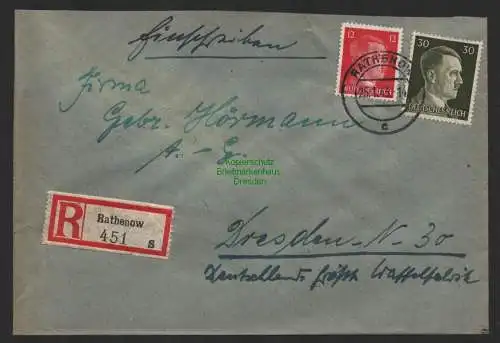 Einschreiben
12 12
30 30
RATHENOW
DEUTSCHES REICH
c
Firma
Gebr. Hörmann
A.-G.
Kopierschutz
Briefmarkenhaus
Dresden
R
Rathenow
451 s
Dresden-N-30
Deutschlands größte Waffelfabrik